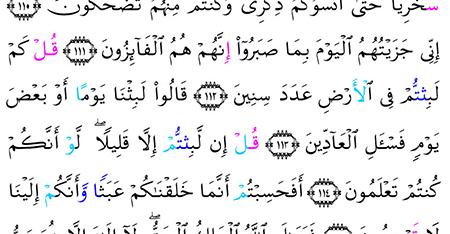 سِخْرِيًّا حَتَّىٰٓ أَنسَوْكُمْ ذِكْرِى وَكُنتُم مِّنْهُمْ تَضْحَكُونَ ﴿١١٠﴾
إِنِّى جَزَيْتُهُمُ ٱلْيَوْمَ بِمَا صَبَرُوٓا۟ إِنَّهُمْ هُمُ ٱلْفَآئِزُونَ ﴿١١١﴾ قُلْ كَمْ
لَبِثْتُمْ فِى ٱلْأَرْضِ عَدَدَ سِنِينَ ﴿١١٢﴾ قَالُوا۟ لَبِثْنَا يَوْمًا أَوْ بَعْضَ
يَوْمٍ فَسْـَٔلِ ٱلْعَآدِّينَ ﴿١١٣﴾ قُلْ إِن لَّبِثْتُمْ إِلَّا قَلِيلًا ۖ لَّوْ أَنَّكُمْ
كُنتُمْ تَعْلَمُونَ ﴿١١٤﴾ أَفَحَسِبْتُمْ أَنَّمَا خَلَقْنَـٰكُمْ عَبَثًا وَأَنَّكُمْ إِلَيْنَا